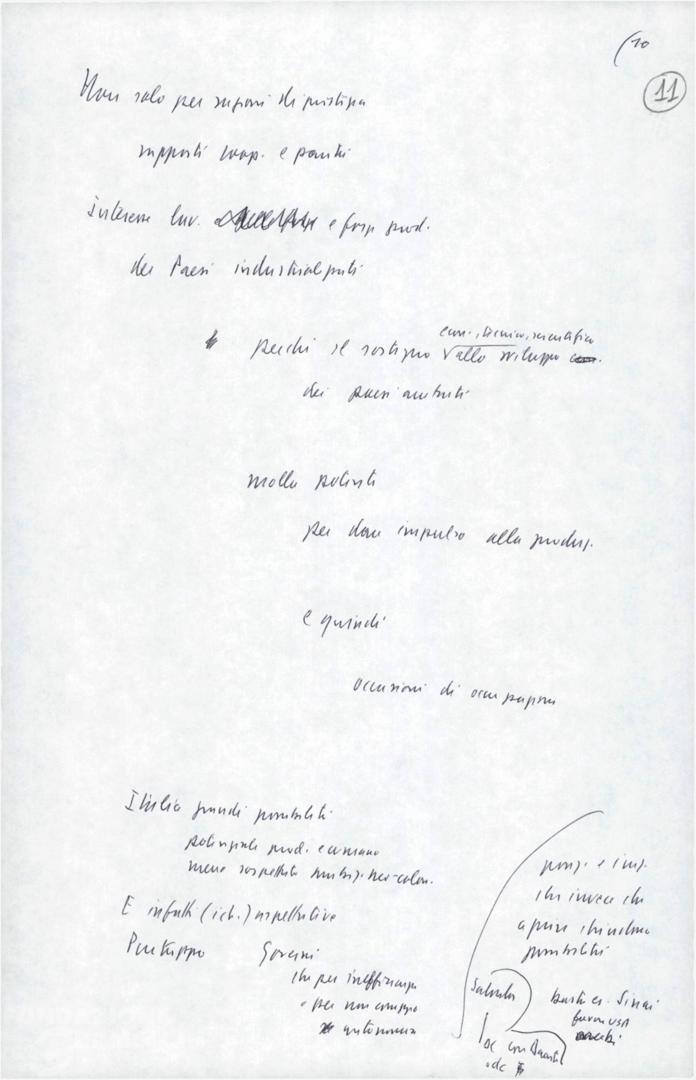 (10
11
Non solo per ragioni di giustizia
rapporti coop. e parità
Interesse lav. e forze prod.
dei Paesi industrializzati
perché il sostegno allo sviluppo
econ., tecnico, scientifico
dei paesi arretrati
molla potente
per dare impulso alla produz.
e quindi
occasioni di occupazione
Italia grandi possibilità
potenziale prod. e umano
meno sospettata neo-colon.
E infatti (ich.) aspettative
Purtroppo Governi
che per inefficienza
o per non
autonomia
che invece che
a aprire chiudono
possibilità
Salvador
es. Sinai
favore USA
DC con Duarte